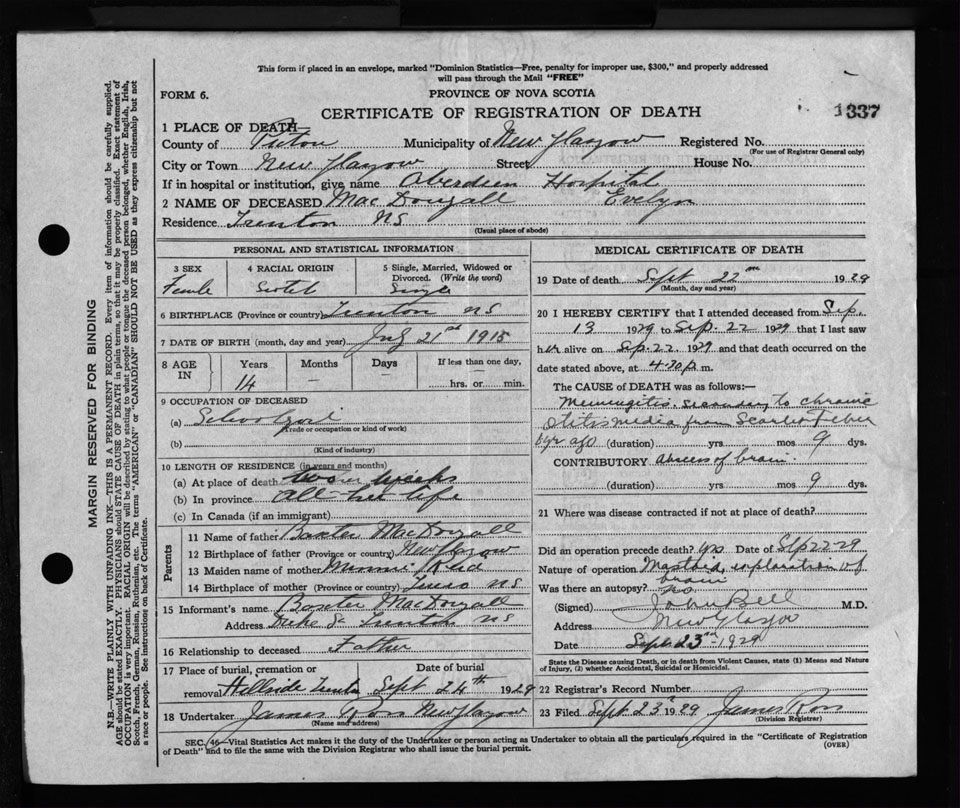 This form if placed in an envelope, marked "Dominion Statistics—Free, penalty for improper use, $300," and properly addressed
will pass through the Mail "FREE"
FORM 6.
PROVINCE OF NOVA SCOTIA
CERTIFICATE OF REGISTRATION OF DEATH
1337
1 PLACE OF DEATH
County of Pictou Municipality of New Glasgow Registered No.
(For use of Registrar General only)
City or Town New Glasgow Street House No.
If in hospital or institution, give name Aberdeen Hospital
2 NAME OF DECEASED MacDougall Evelyn
Residence Trenton NS
(Usual place of abode)
PERSONAL AND STATISTICAL INFORMATION
3 SEX 4 RACIAL ORIGIN 5 Single, Married, Widowed or
Divorced. (Write the word)
Female Scotch Single
6 BIRTHPLACE (Province or country) Trenton NS
7 DATE OF BIRTH (month, day and year) 21st 1915
8 AGE IN Years Months Days If less than one day,
14 — — hrs. or min.
9 OCCUPATION OF DECEASED
(a) Schoolgirl
(Trade or occupation or kind of work)
(b)
(Kind of industry)
10 LENGTH OF RESIDENCE (in years and months)
(a) At place of death two weeks
(b) In province all her life
(c) In Canada (if an immigrant)
Parents
11 Name of father Baxter MacDougall
12 Birthplace of father (Province or country) New Glasgow
13 Maiden name of mother Minnie Reid
14 Birthplace of mother (Province or country) Truro NS
15 Informant's name Baxter MacDougall
Address Duke St Trenton NS
16 Relationship to deceased Father
17 Place of burial, cremation or Date of burial
removal Hillside Trenton Sept 24th 1929
18 Undertaker James New Glasgow
(Name and address)
MEDICAL CERTIFICATE OF DEATH
19 Date of death Sept 22nd 1929
(Month, day and year)
20 I HEREBY CERTIFY that I attended deceased from Sep.
13 1929 to Sep. 22 1929 that I last saw
her alive on Sep. 22 1929 and that death occurred on the
date stated above, at p.m.
The CAUSE OF DEATH was as follows:—
Meningitis secondary to chronic
Otitis media from Scarlet Fever
yr ago (duration) yrs mos 9 dys.
CONTRIBUTORY Abscess of brain.
(duration) yrs mos 9 dys.
21 Where was disease contracted if not at place of death?
Did an operation precede death? yes Date of Sep 22-29
Nature of operation Mastoid, exploration of
brain
Was there an autopsy? no
(Signed) John Bell M.D.
Address New Glasgow
Date Sept 23rd 1929
State the Disease causing Death, or in death from Violent Causes, state (1) Means and Nature
of Injury, (2) whether Accidental, Suicidal or Homicidal.
22 Registrar's Record Number
23 Filed Sept 23rd 1929 James Ross
(Division Registrar)
SEC. 46—Vital Statistics Act makes it the duty of the Undertaker or person acting as Undertaker to obtain all the particulars required in the "Certificate of Registration
of Death" and to file the same with the Division Registrar who shall issue the burial permit.
(OVER)
MARGIN RESERVED FOR BINDING
N.B.—WRITE PLAINLY WITH UNFADING INK—THIS IS A PERMANENT RECORD. Every item of information should be carefully supplied.
AGE should be stated EXACTLY. PHYSICIANS should STATE CAUSE OF DEATH in plain terms, so that it may be properly classified. Exact statement of
OCCUPATION is very important. RACIAL ORIGIN will be described by stating to what people or tongue the deceased person belonged, whether English, Irish,
Scotch, French, German, Russian, Ruthenian, etc. The terms "AMERICAN" or "CANADIAN" SHOULD NOT BE USED as they express citizenship but not
a race or people. See instructions on back of Certificate.